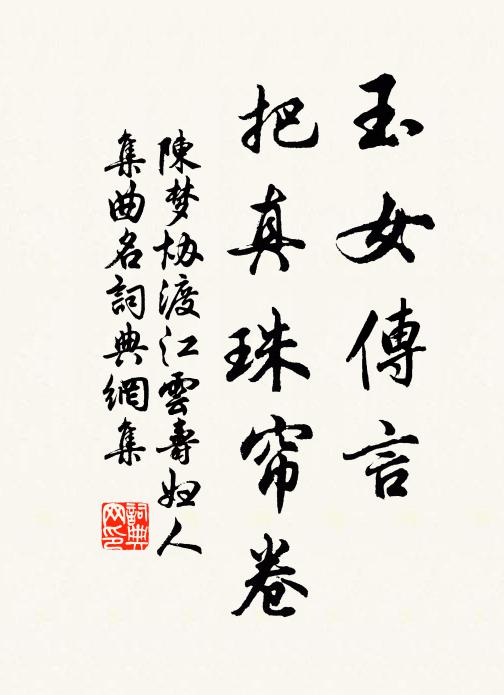 玉女傳言
把真珠帘卷
陳梦协渡江雲壽妇人
集曲名詞典網集
詞典
网印